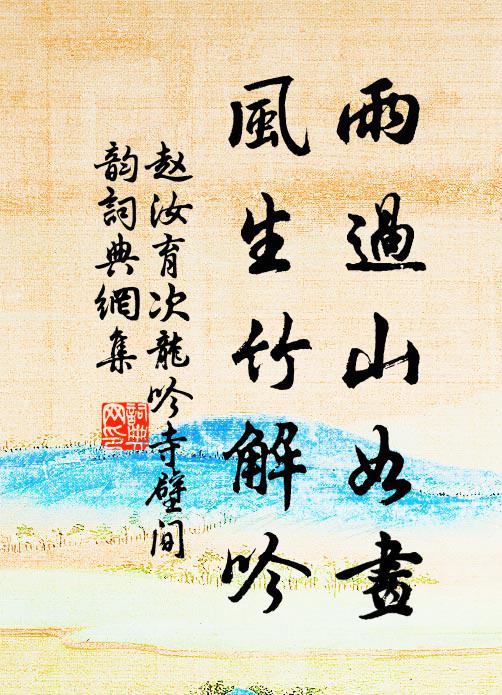 雨過山如畫
風生竹解吟
赵汝育次龍吟寺壁间
韵詞典網集
詞典网印